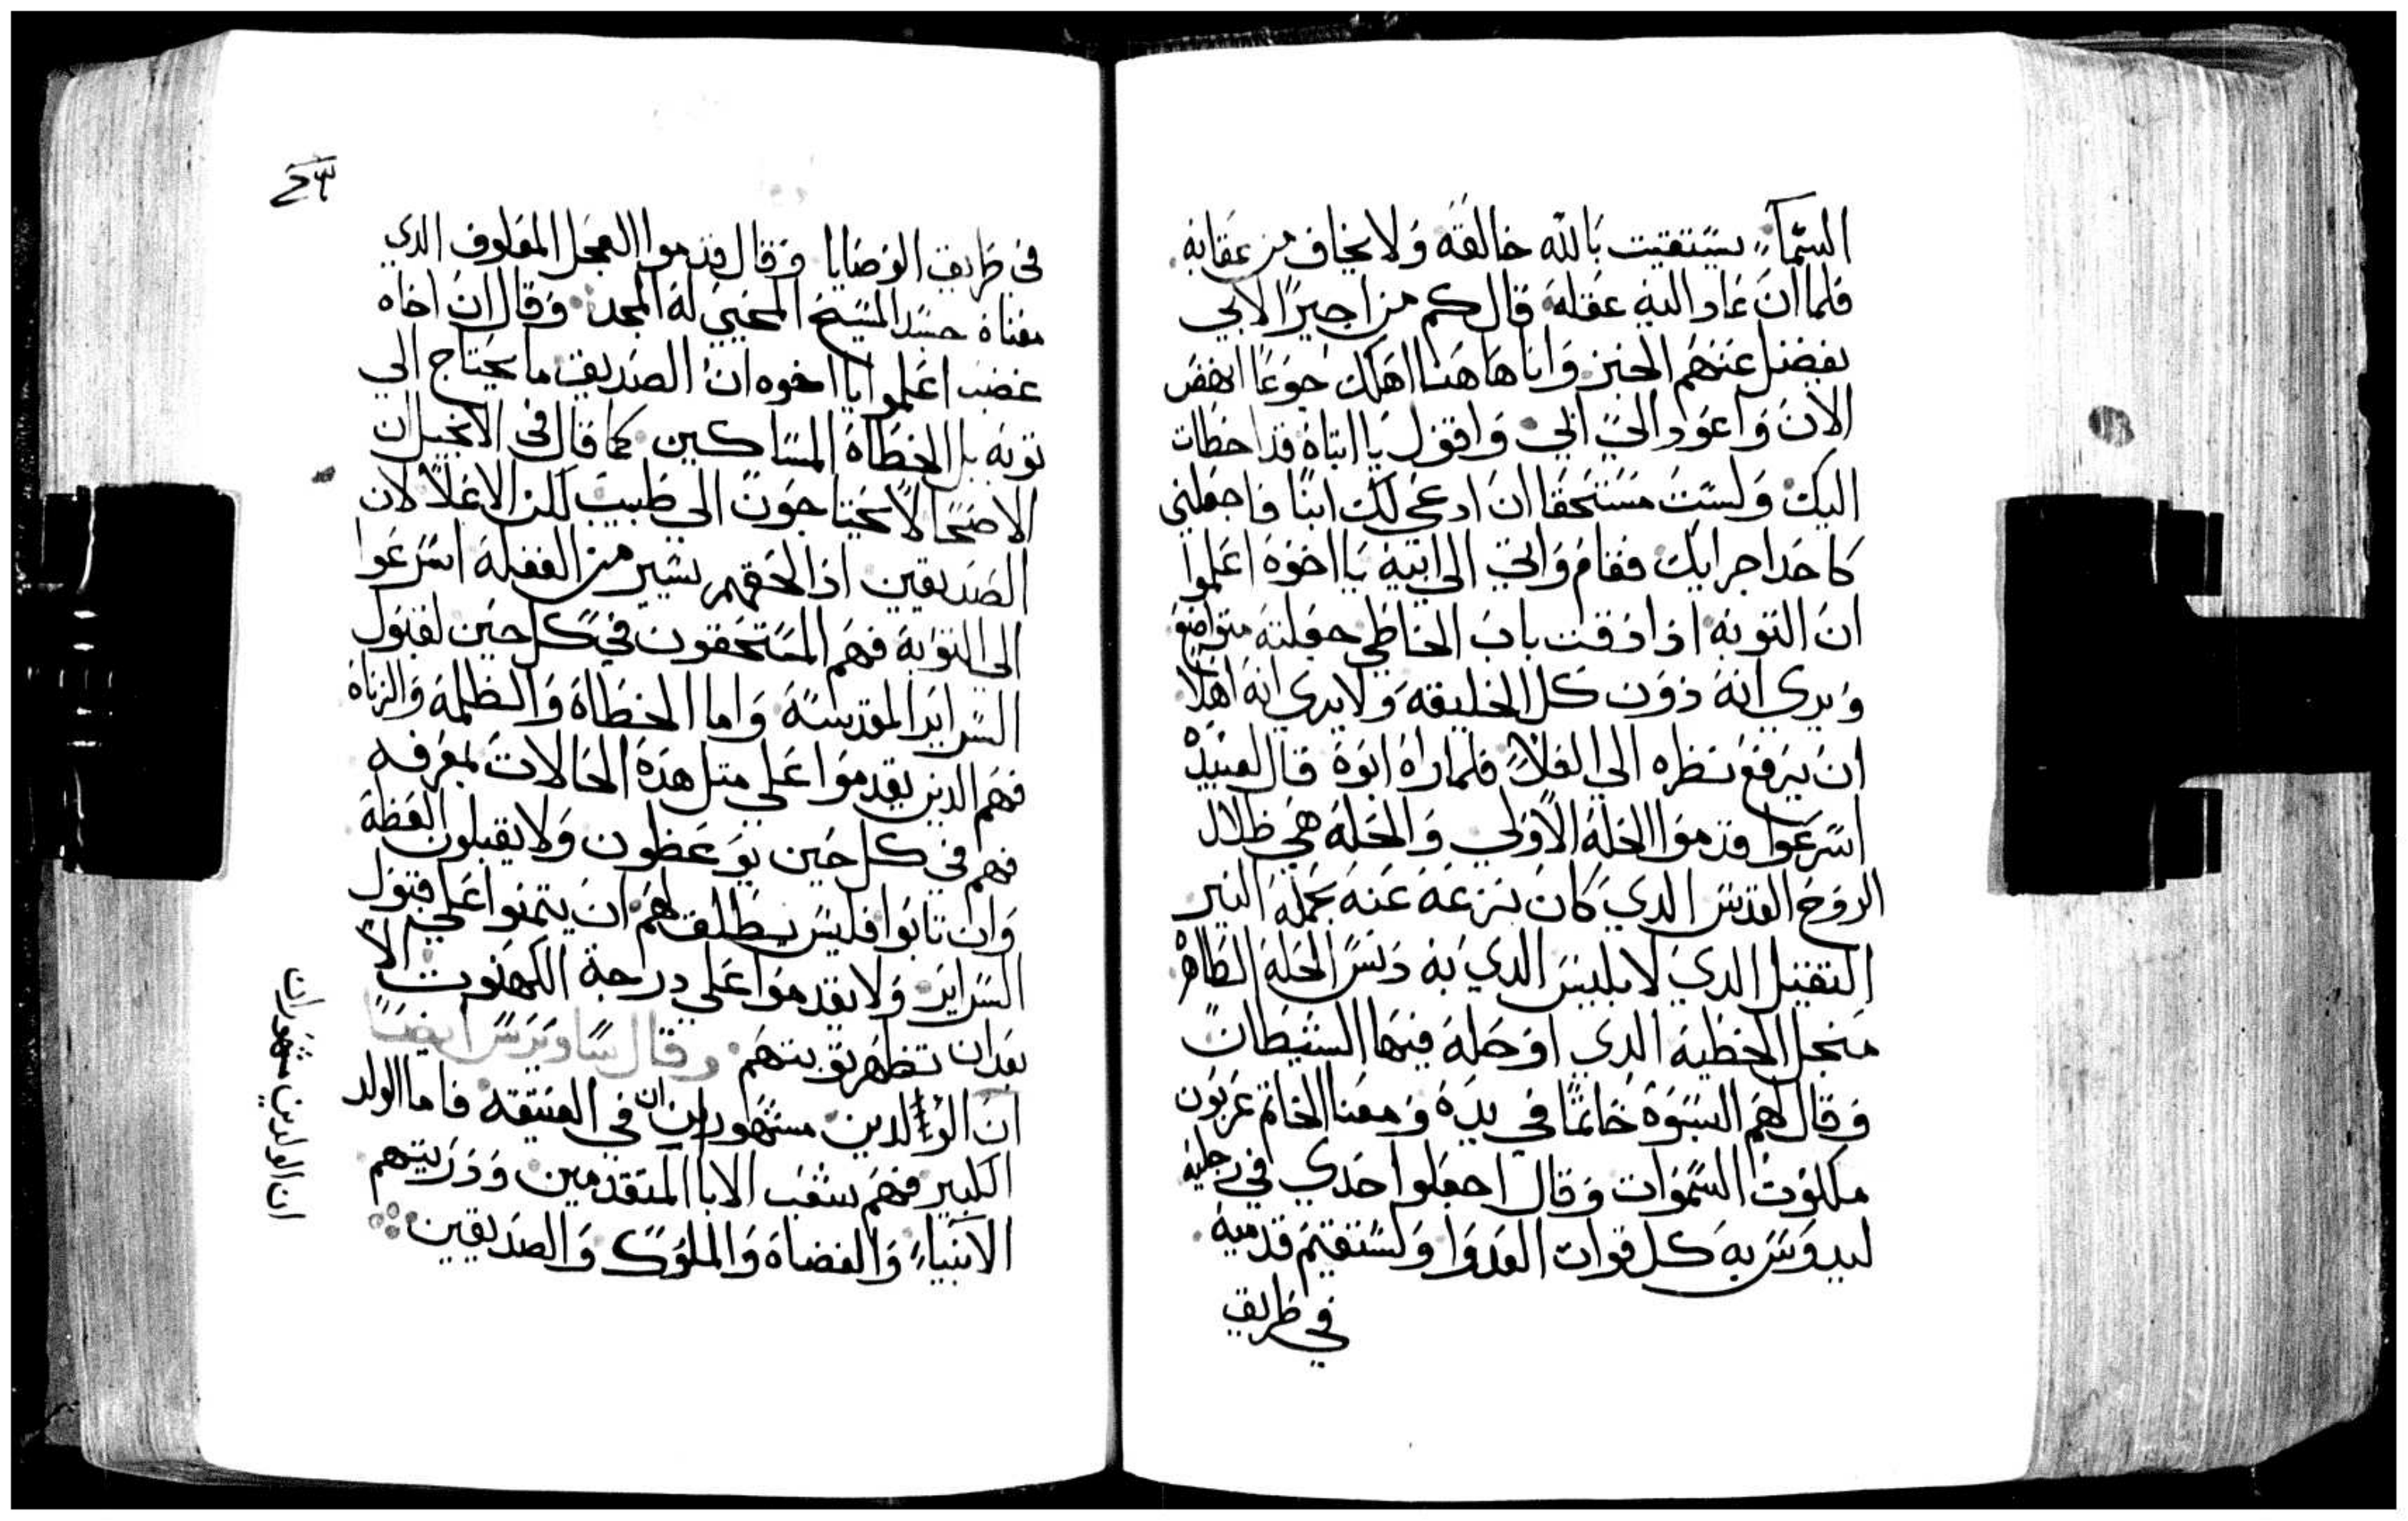 السمآء يستقيت بالله خالقه ولا يخاف من عقابه
فلما ان عاد اليه عقله قال كم من اجيرًا لابي
يفضل عنهم الخبز وانا هاهنا اهلك جوعًا انهض
الان واعود الي ابي واقول يا ابتاه قد اخطات
اليك ولست مستحقا ان ادعي لك ابنًا فاجعلني
كاحد اجرايك فقام واتي الي ابيه يا اخوه اعلموا
ان التوبه اذا دقت باب الخاطي جعلته متواضع
ويري انه دون كل الخليقه ولا يري انه اهلًا
ان يرفع نظره الي العلآ فلما راه ابوه قال لعبيده
اسرعوا قدموا الحله الاولي والحله هي ظلال
الروح القدس الدي كان نزعه عنه بحمله النير
التقيل الدي لابليس الدي به دنس الحله الطاهره
منجل الخطيه الدي اوحله فيها الشيطان
وقال لهم البسوه خاتمًا في يده ومعنا الخاتم عربون
ملكوت السموات وقال اجعلوا حدي في رجليه
ليدوس به كل قوات العدوا ولتستقيم قدميه
في طريق
٤٣
في طريق الوصايا وقال قدموا العجل المعلوف الدي
معناه جسد المسيح المحيي له المجد وقال ان اخاه
غضب اعلموا يا اخوه ان الصديق ما يحتاج الي
توبه بل الخطاه المساكين كما قال في الانجيل ان
الاصحا لا يحتاجون الي طبيب لكن الاعلا لان
الصديقين ادا لحقهم يسير من الغفله اسرعوا
الي التوبه فهم المستحقون في كل حين لقبول
السراير المقدسه واما الخطاه والظلمه والزناه
فهم الدين يقدموا علي متل هده الحالات بمعرفه
فهم في كل حين يوعظون ولا يقبلون العظة
وان تابوا فليس يطلق لهم ان يتمنوا علي قبول
السراير ولا يقدموا علي دراجة الكهنوت الا
بعد ان تظهر توبتهم وقال ساويرس ايضًا
ان الولدين مشهوران في العتيقه فاما الولد
الكبير فهم شعب الابا المتقدمين ودريتهم
الانبياء والقضاه والملوك والصديقين
ان الولدين مشهوران